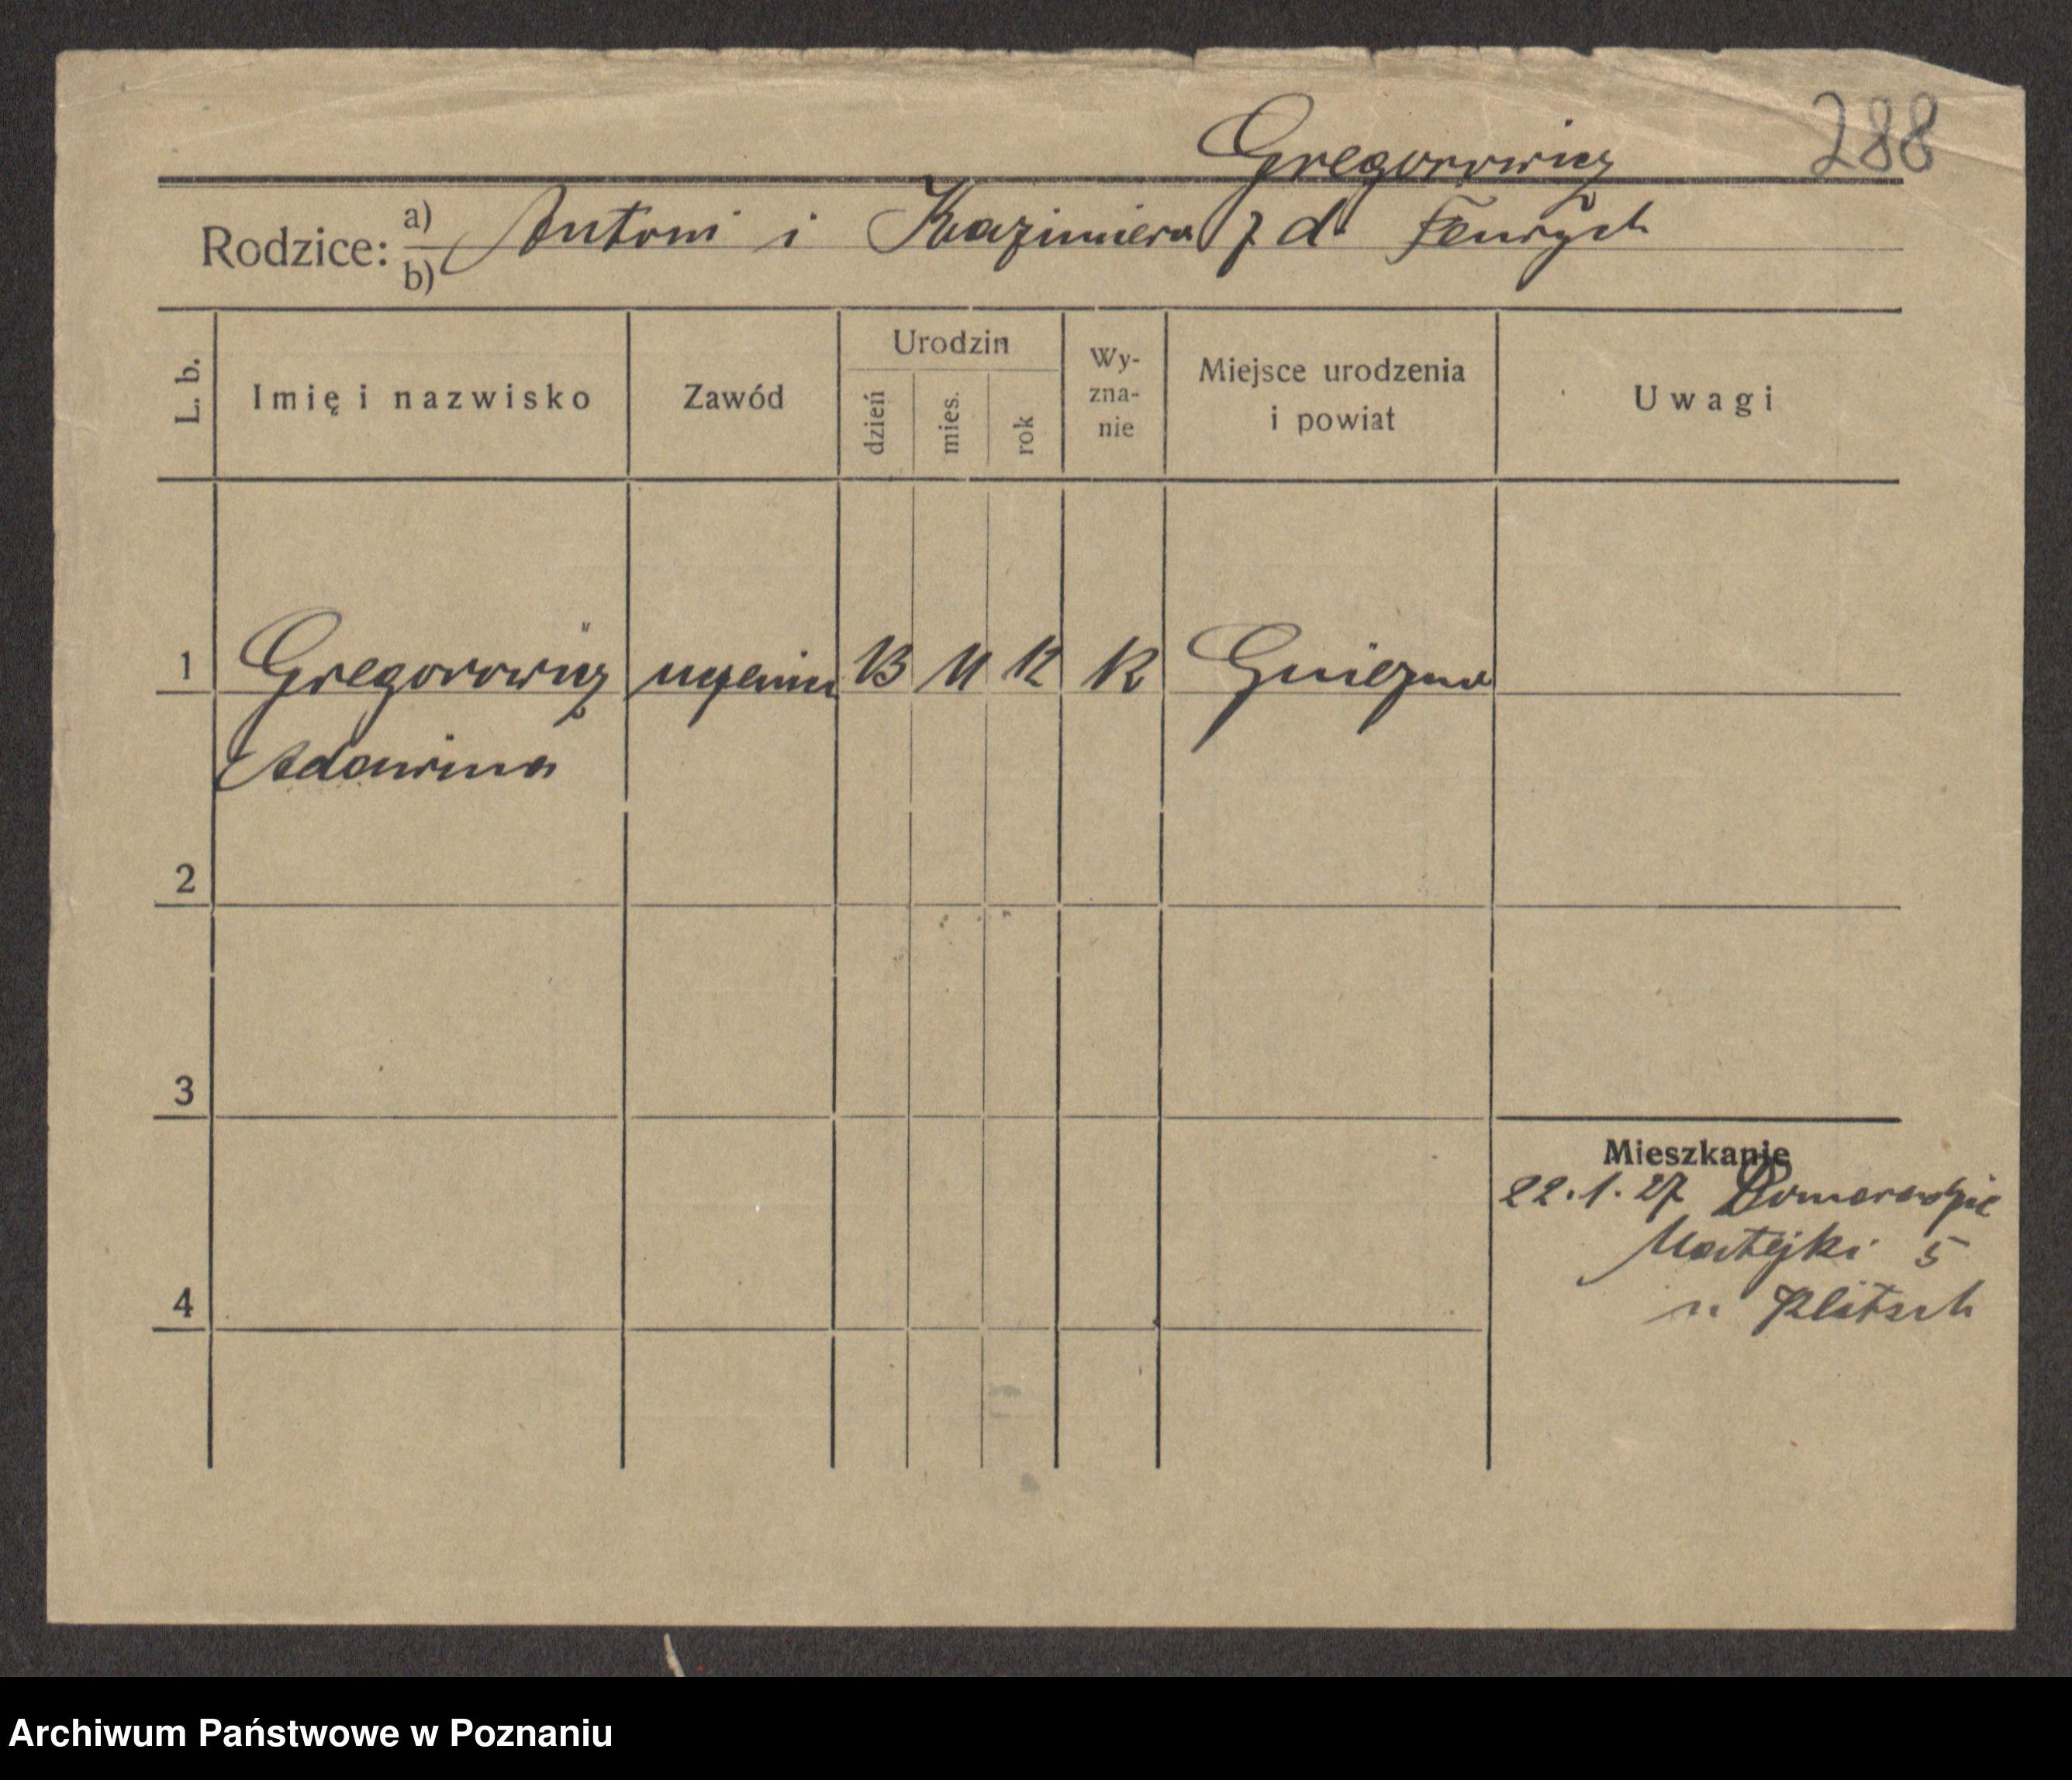 Gregorowicz 288
Rodzice: a) b) Antoni i Kazimiera z d. Fenrych
L. b. Imię i nazwisko Zawód Urodzin dzień mies. rok Wy-zna-nie Miejsce urodzenia i powiat Uwagi
1 Gregorowicz uczenica 13 11 12 K Gniezno
2
3
4
Mieszkanie
22.1.27
Matejki 5
u Klitsch
Archiwum Państwowe w Poznaniu